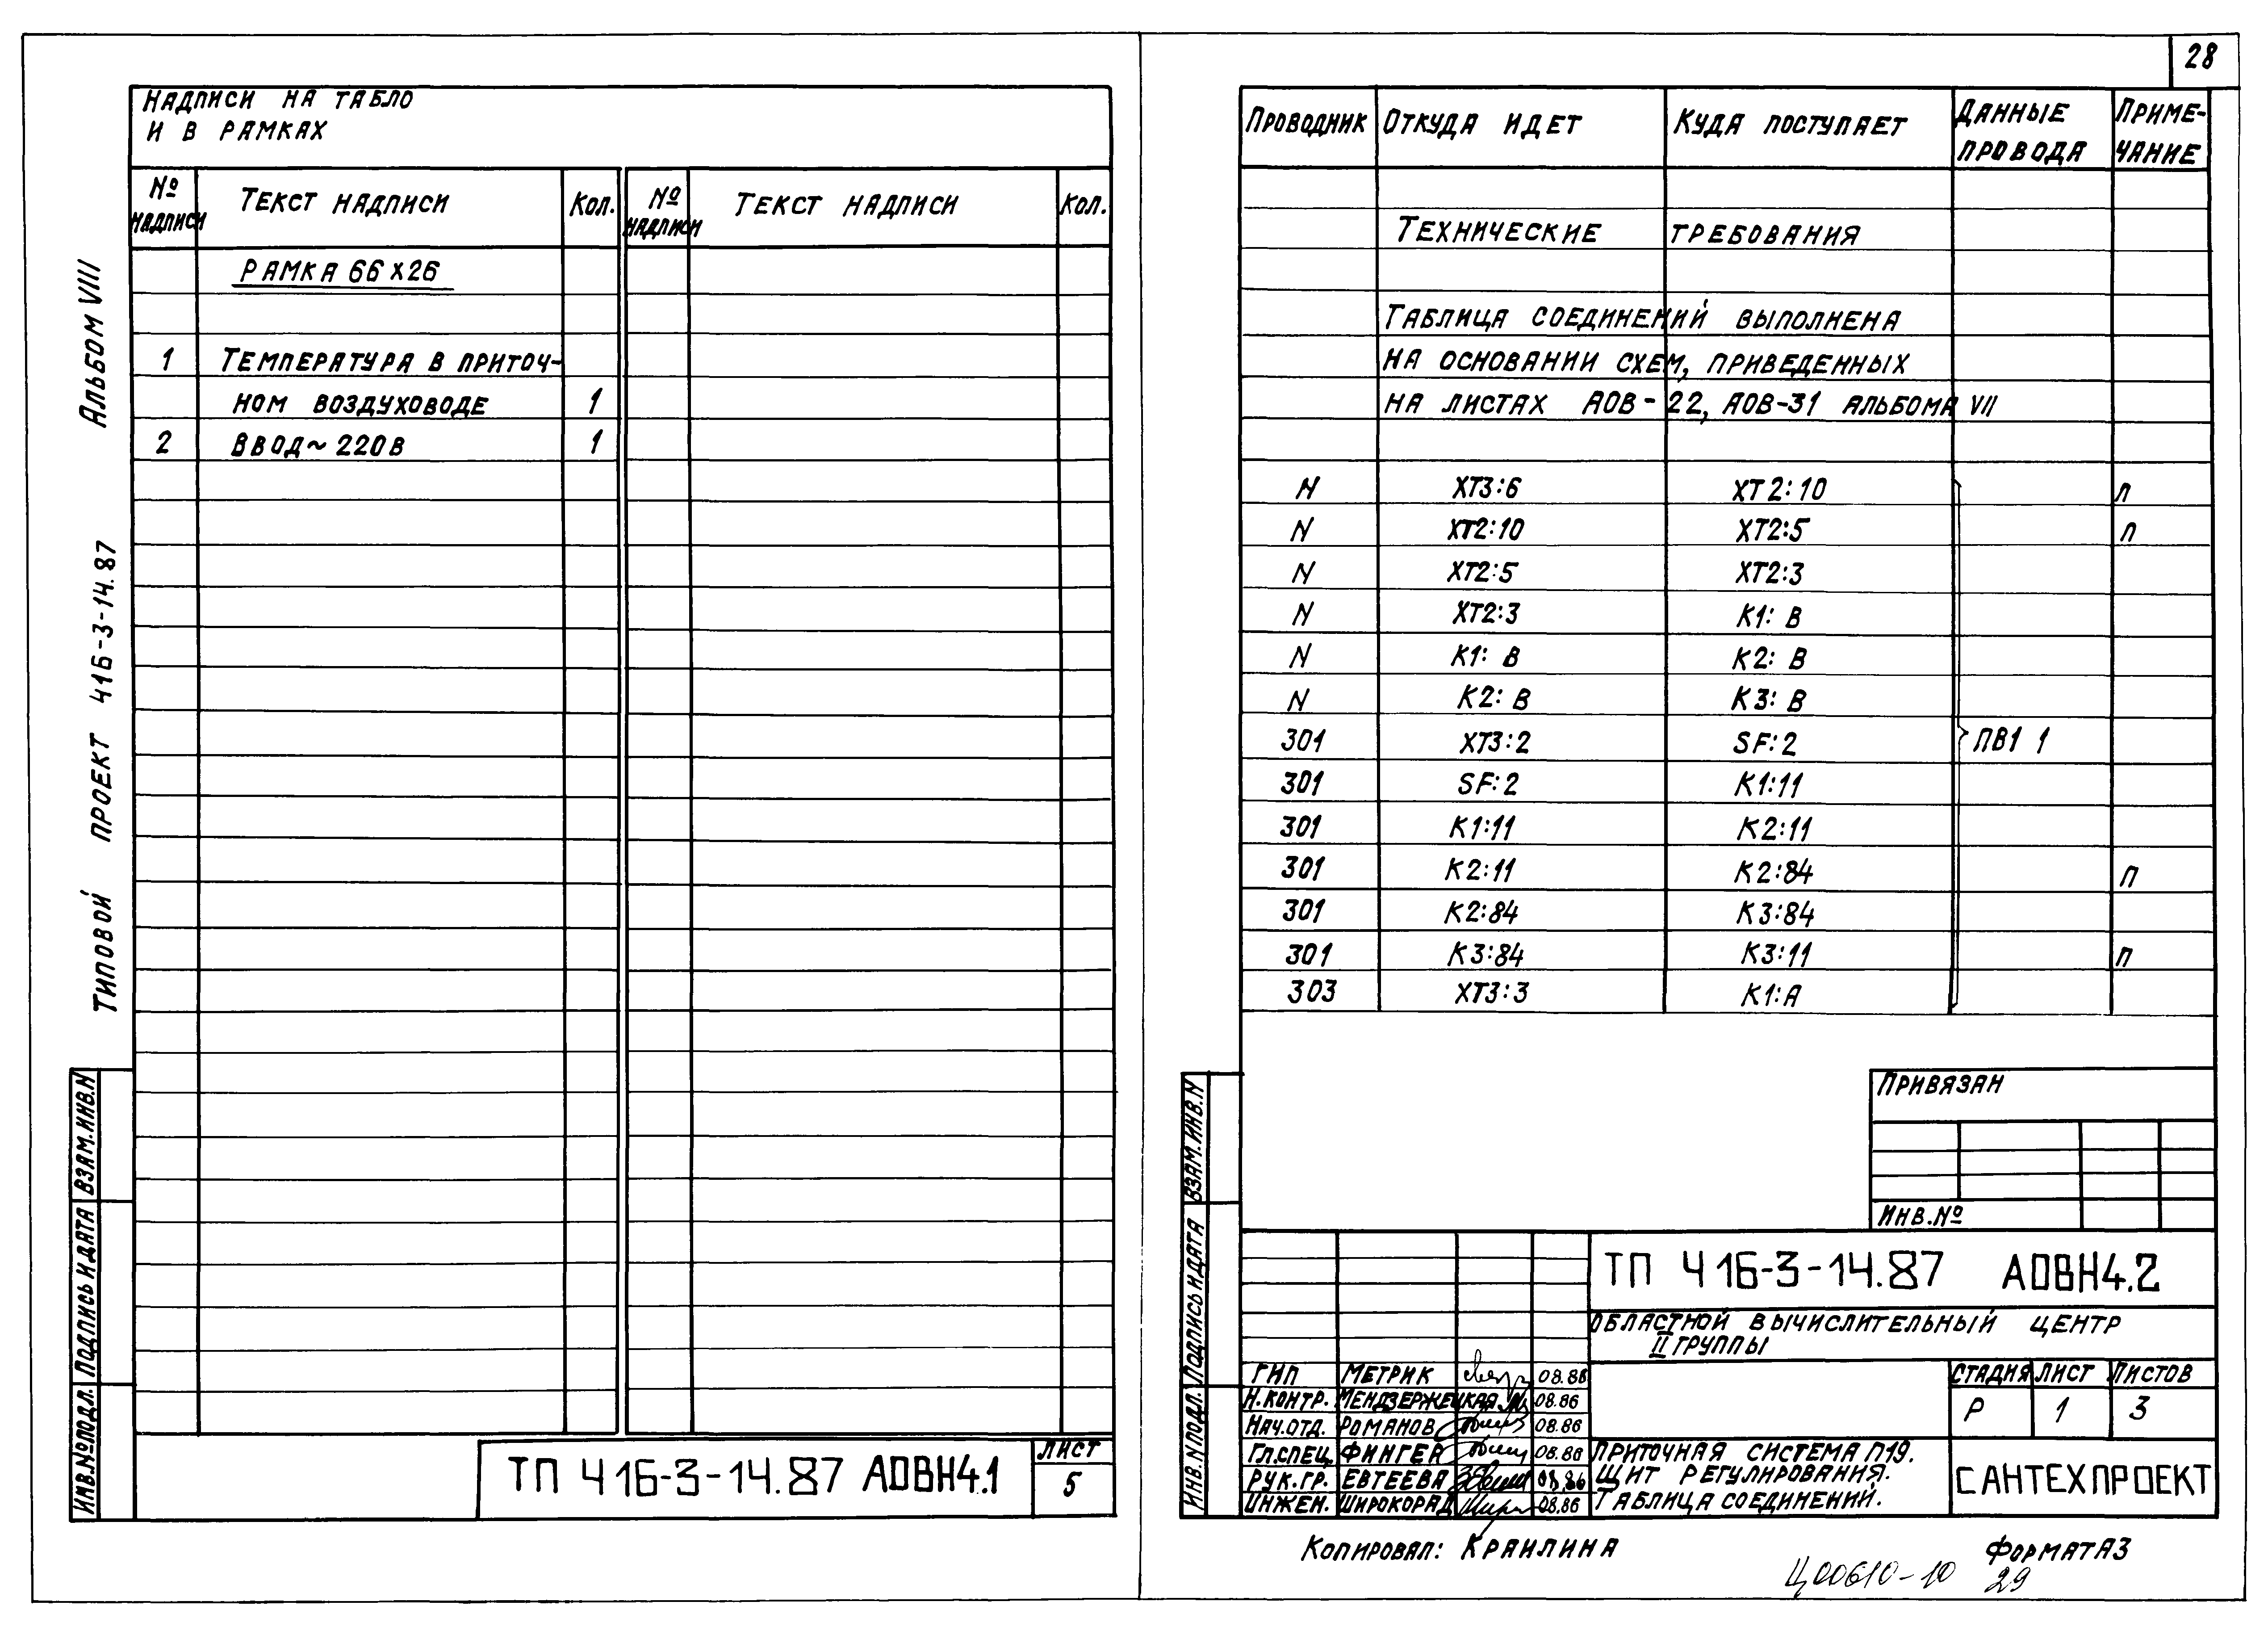 28
Надписи на табло
и в рамках
№ надписи Текст надписи Кол. № надписи Текст надписи Кол.
Рамка 66х26
1 Температура в приточ-
ном воздуховоде 1
2 Ввод ~ 220 В 1
Типовой проект 416-3-14.87 Альбом VIII
Взам. инв. N
Подпись и дата
Инв. № подл.
ТП 416-3-14.87 АОВН4.1
Лист
5
Проводник Откуда идет Куда поступает Данные провода Приме-чание
Технические требования
Таблица соединений выполнена
на основании схем, приведенных
на листах АОВ-22, АОВ-31 альбома VII
N ХТ3:6 ХТ2:10 п
N ХТ2:10 ХТ2:5 п
N ХТ2:5 ХТ2:3
N ХТ2:3 К1: В
N К1: В К2: В
N К2: В К3: В
301 ХТ3:2 SF:2 ПВ1 1
301 SF:2 К1:11
301 К1:11 К2:11
301 К2:11 К2:84 п
301 К2:84 К3:84
301 К3:84 К3:11 п
303 ХТ3:3 К1:А
Привязан
Инв. №
Взам. инв. N
Подпись и дата
Инв. N подл.
ТП 416-3-14.87 АОВН4.2
Областной вычислительный центр
II группы
ГИП Метрик 08.86
Н.контр. Мендзержецкая 08.86
Нач.отд. Романов 08.86
Гл.спец. Фингер 08.86
Рук.гр. Евтеева 08.86
Инжен. Широкорад 08.86
Стадия Лист Листов
Р 1 3
Приточная система П19.
Щит регулирования.
Таблица соединений.
САНТЕХПРОЕКТ
Копировал: Краилина
Формат А3
Ц00610-10 29